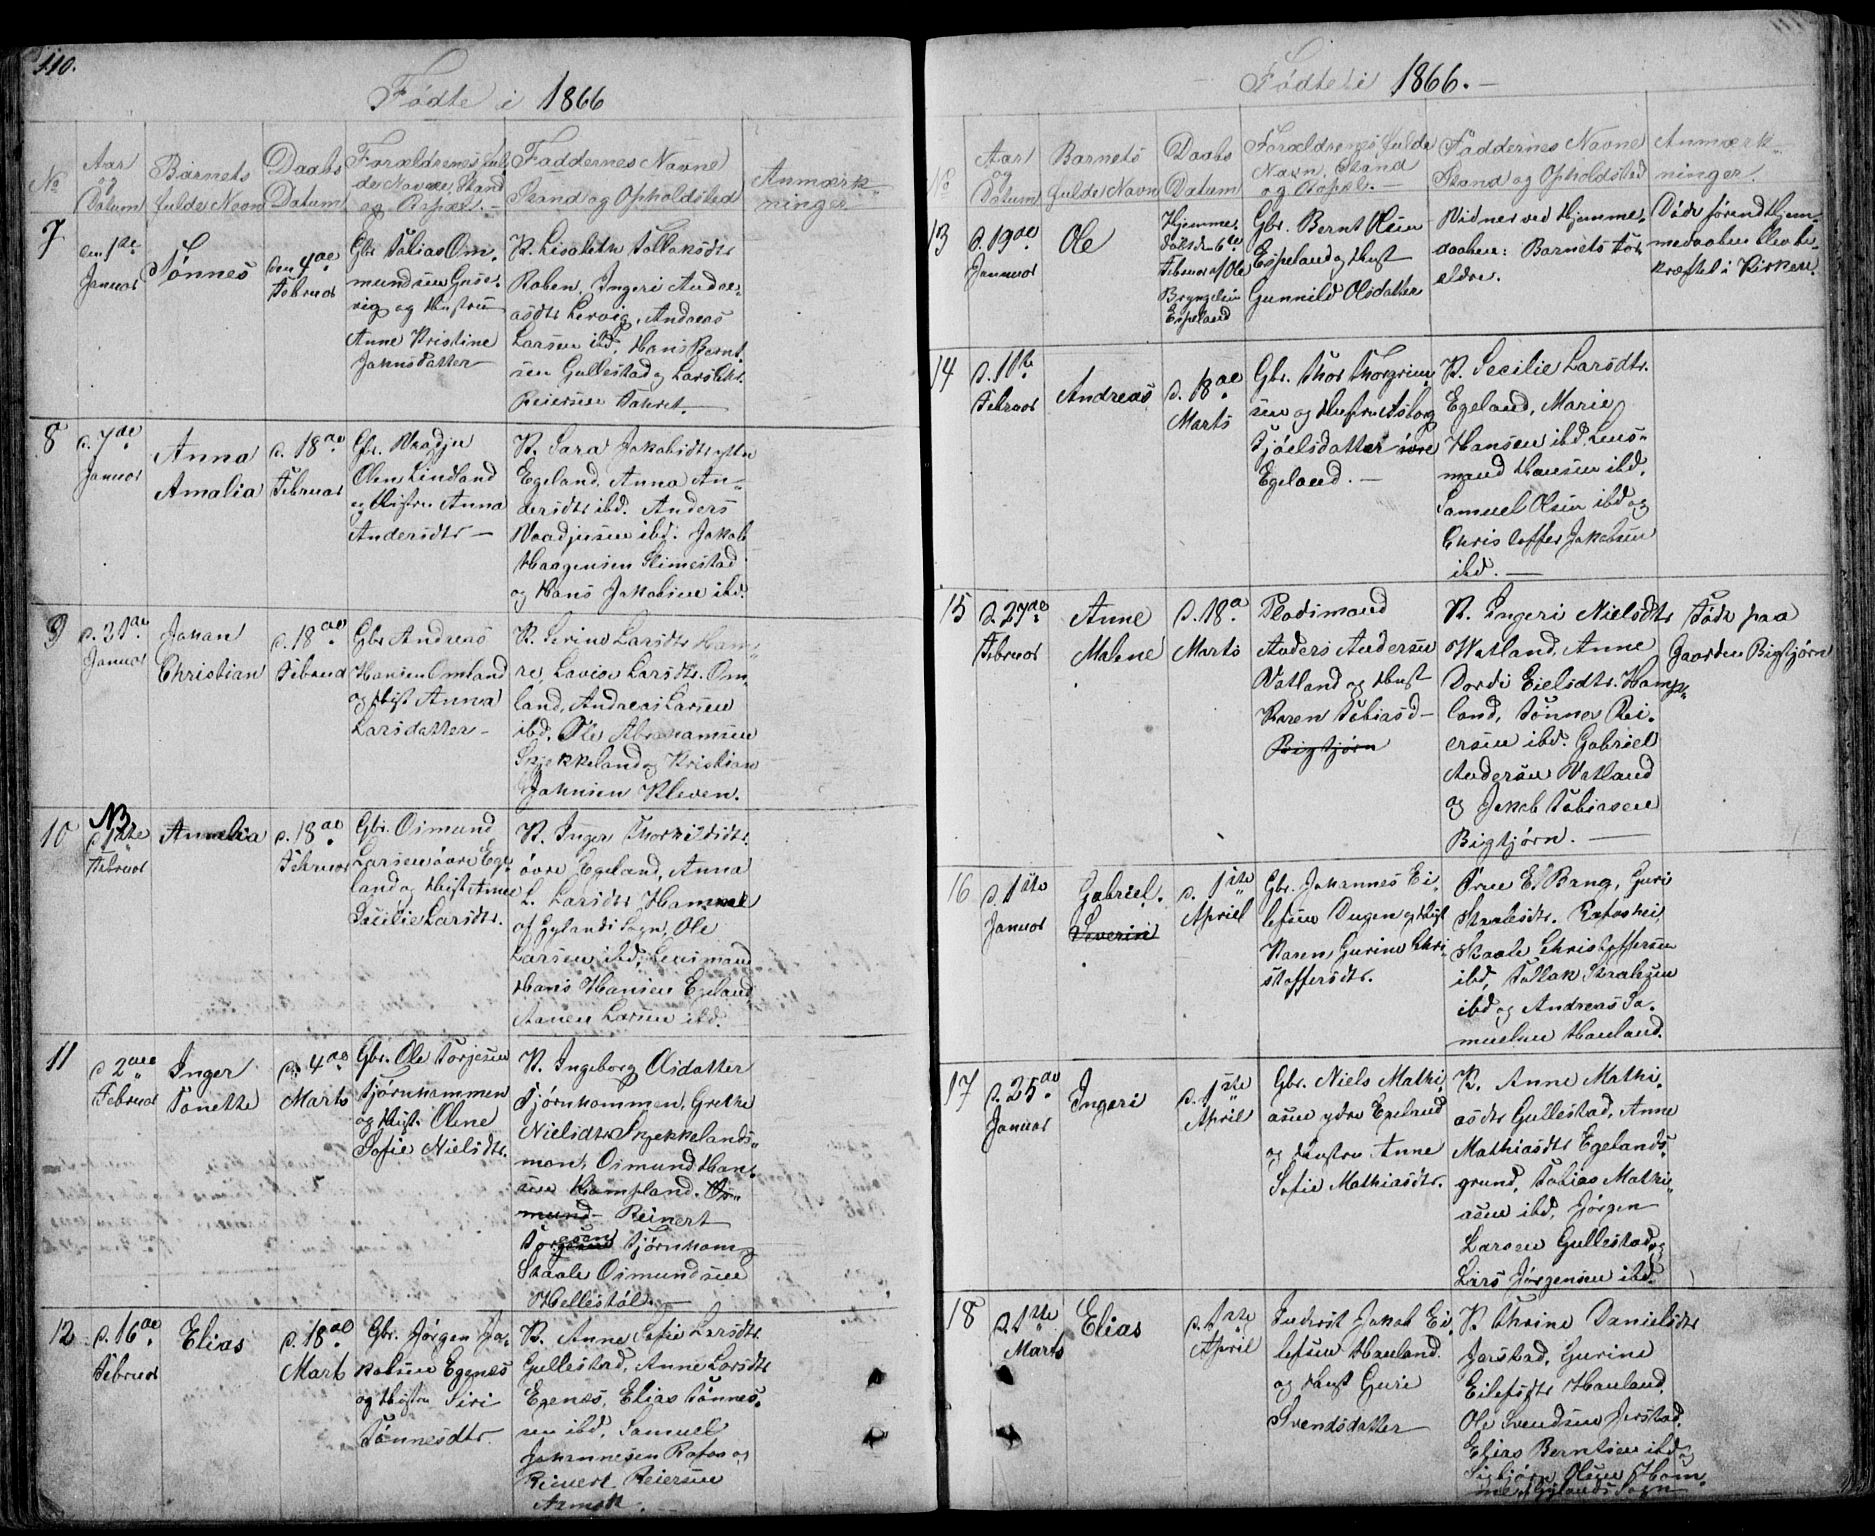 110.
Fødte i 1866
No
Aar og Datum
Barnets fulde Navn
Daabs Datum
Forældrenes fulde Navne, Stand og Bopæl.
Faddernes Navne Stand og Opholdsted
Anmærkninger
7
den 1de Januar
Tønnes
den 4de Februar
Gbr Tobias Om-
mundsen
og Hustru
Anne Kristine
Johnsdatter
K. Lisabeth Tollaksdtr
Roben, Ingeri Andre-
asdtr Lervig, Andreas
Larsen ibd, Hans Bernt-
sen Gullestad og Lars
Reiersen
8
d. 7de Januar
Anna
Amalia
d. 18de Februar
Gbr. Vaadju
Olsen Lindland
og Hustru Anna
Andersdtr
K. Sara Jakobsdtr ytre
Egeland, Anna An-
dersdtr ibd. Anders
Vaadjusen ibd. Jakob
Haagensen Slimestad
og Hans Jakobsen ibd.
9
d. 21de Januar
Johan
Christian
d. 18de Februar
Gbr Andreas
Hansen Omland
og Hust Anna
Larsdatter
K. Serine Larsdtr Ham-
re, Lovise Larsdtr. Om-
land, Andreas Larsen
ibd. Ole Abrahamsen
Skjekkeland og Kristian
Johnsen Kleven.
10
NB
d 1ste Februar
Annelia
d. 18de Februar
Gbr. Osmund
Larsen övre Ege-
land og Hust Anne
Secilie Larsdtr.
K. Inger Thorkildsdtr.
övre Egeland, Anna
L. Larsdtr Hamre
af Gylands Sogn, Ole
Larsen ibd, Lensmand
Hans Hansen Egeland
Aanen Larsen ibd.
11
d 2den Februar
Inger
Tonette
d. 4de Marts
Gbr. Ole Torjesen
Tjørnhommen
og Hust. Oline
Sofie Nielsdtr.
K. Ingeborg Olsdatter
Tjørnhommen, Grethe
Nielsdtr Skjekkelands-
moen, Osmund Han-
sen Hompland. Os-
mund Reinert
Torgesen Tjørnhom,
Staale Osmundsen
Hellestöl.
12
d. 16de Februar
Elias
d. 18de Marts
Gbr. Jørgen Ja-
kobsen Egenes
og Hustru Siri
Tønnesdtr.
K. Anne Sofie Larsdtr.
Gullestad, Anne Larsdtr
Egenæs, Elias Tönnes-
sen ibd, Samuel
Johannesen Rafos og
Reinert Reiersen
111
Fødte i 1866.
No
Aar og Datum
Barnets fulde Navn
Daabs Datum
Forældrenes fulde Navn, Stand og Bopæl.
Faddernes Navne Stand og Opholdsted
Anmærkninger.
13
d. 19de Januar
Ole
Hjemme-
døbt d. 6te
Februar af Ole
Bryngelsen
Espeland
Gbr. Bernt Olsen
Espeland og Hust
Gunnild Olsdatter
Vidner ved Hjemme-
daaben: Barnets For-
eldre.
Döde førend Hjem-
medaaben blev be-
kræftet i Kirken.
14
d. 11te Februar
Andreas
d. 18de Marts
Gbr. Thor Thorgrim-
sen og Hustru Asborg
Tjöelsdatter
Egeland.
K. Secilie Larsdtr.
Egeland, Marie
Hansen ibd, Lens-
mand Hansen ibd,
Samuel Olsen ibd og
Christoffer Jakobsen
ibd.
15
d. 27de Februar
Anne
Malene
d. 18de Marts
Pladsmand
Anders Andersen
Vatland og Hust
Karen Tobiasd
Bigtjørn
K. Ingeri Nielsdtr
Watland, Anne
Dordi Eielsdtr. Homp-
land, Tønnes Rei-
ersen ibd. Gabriel
Andersen Vatland
og Jakob Tobiasen
Bigtjørn.
Födt paa
Gaarden Bigtjørn
16
d. 1ste Januar
Gabriel.
Severin
d. 1ste Apriel
Gbr. Johannes Ei-
lefsen Dugen og Hust
Karen Gurine Chri-
stoffersdtr.
Frue El Bang, Guri
Staalesdtr. Rafoshei
Staale Christoffersen
ibd, Tollak Staalesen
ibd og Andreas Sa-
muelsen Hauland.
17
d. 25de Januar
Ingeri
d. 1ste April
Gbr. Niels Mathi-
asen ydre Egeland
og Hustru Anne
Sofie Mathiasdtr.
K. Anne Mathi-
asdtr Gullestad, Anne
Mathiasdtr Egelands-
grund, Tobias Mathi-
asen ibd, Jørgen
Larsen Gullestad og
Lars Jörgensen ibd.
18
d. 1ste Marts
Elias
d. 1ste Apriel
Inderst Jakob Ei-
lefsen Hauland
og Hust Guri
Svendsdatter
K. Thrine Danielsdtr
Jerstad, Gurine
Eilefsdtr Hauland,
Ole Svendsen Jerstad,
Elias Berntsen ibd og
Sigbjørn Olsen Hom-
me, Gylands Sogn